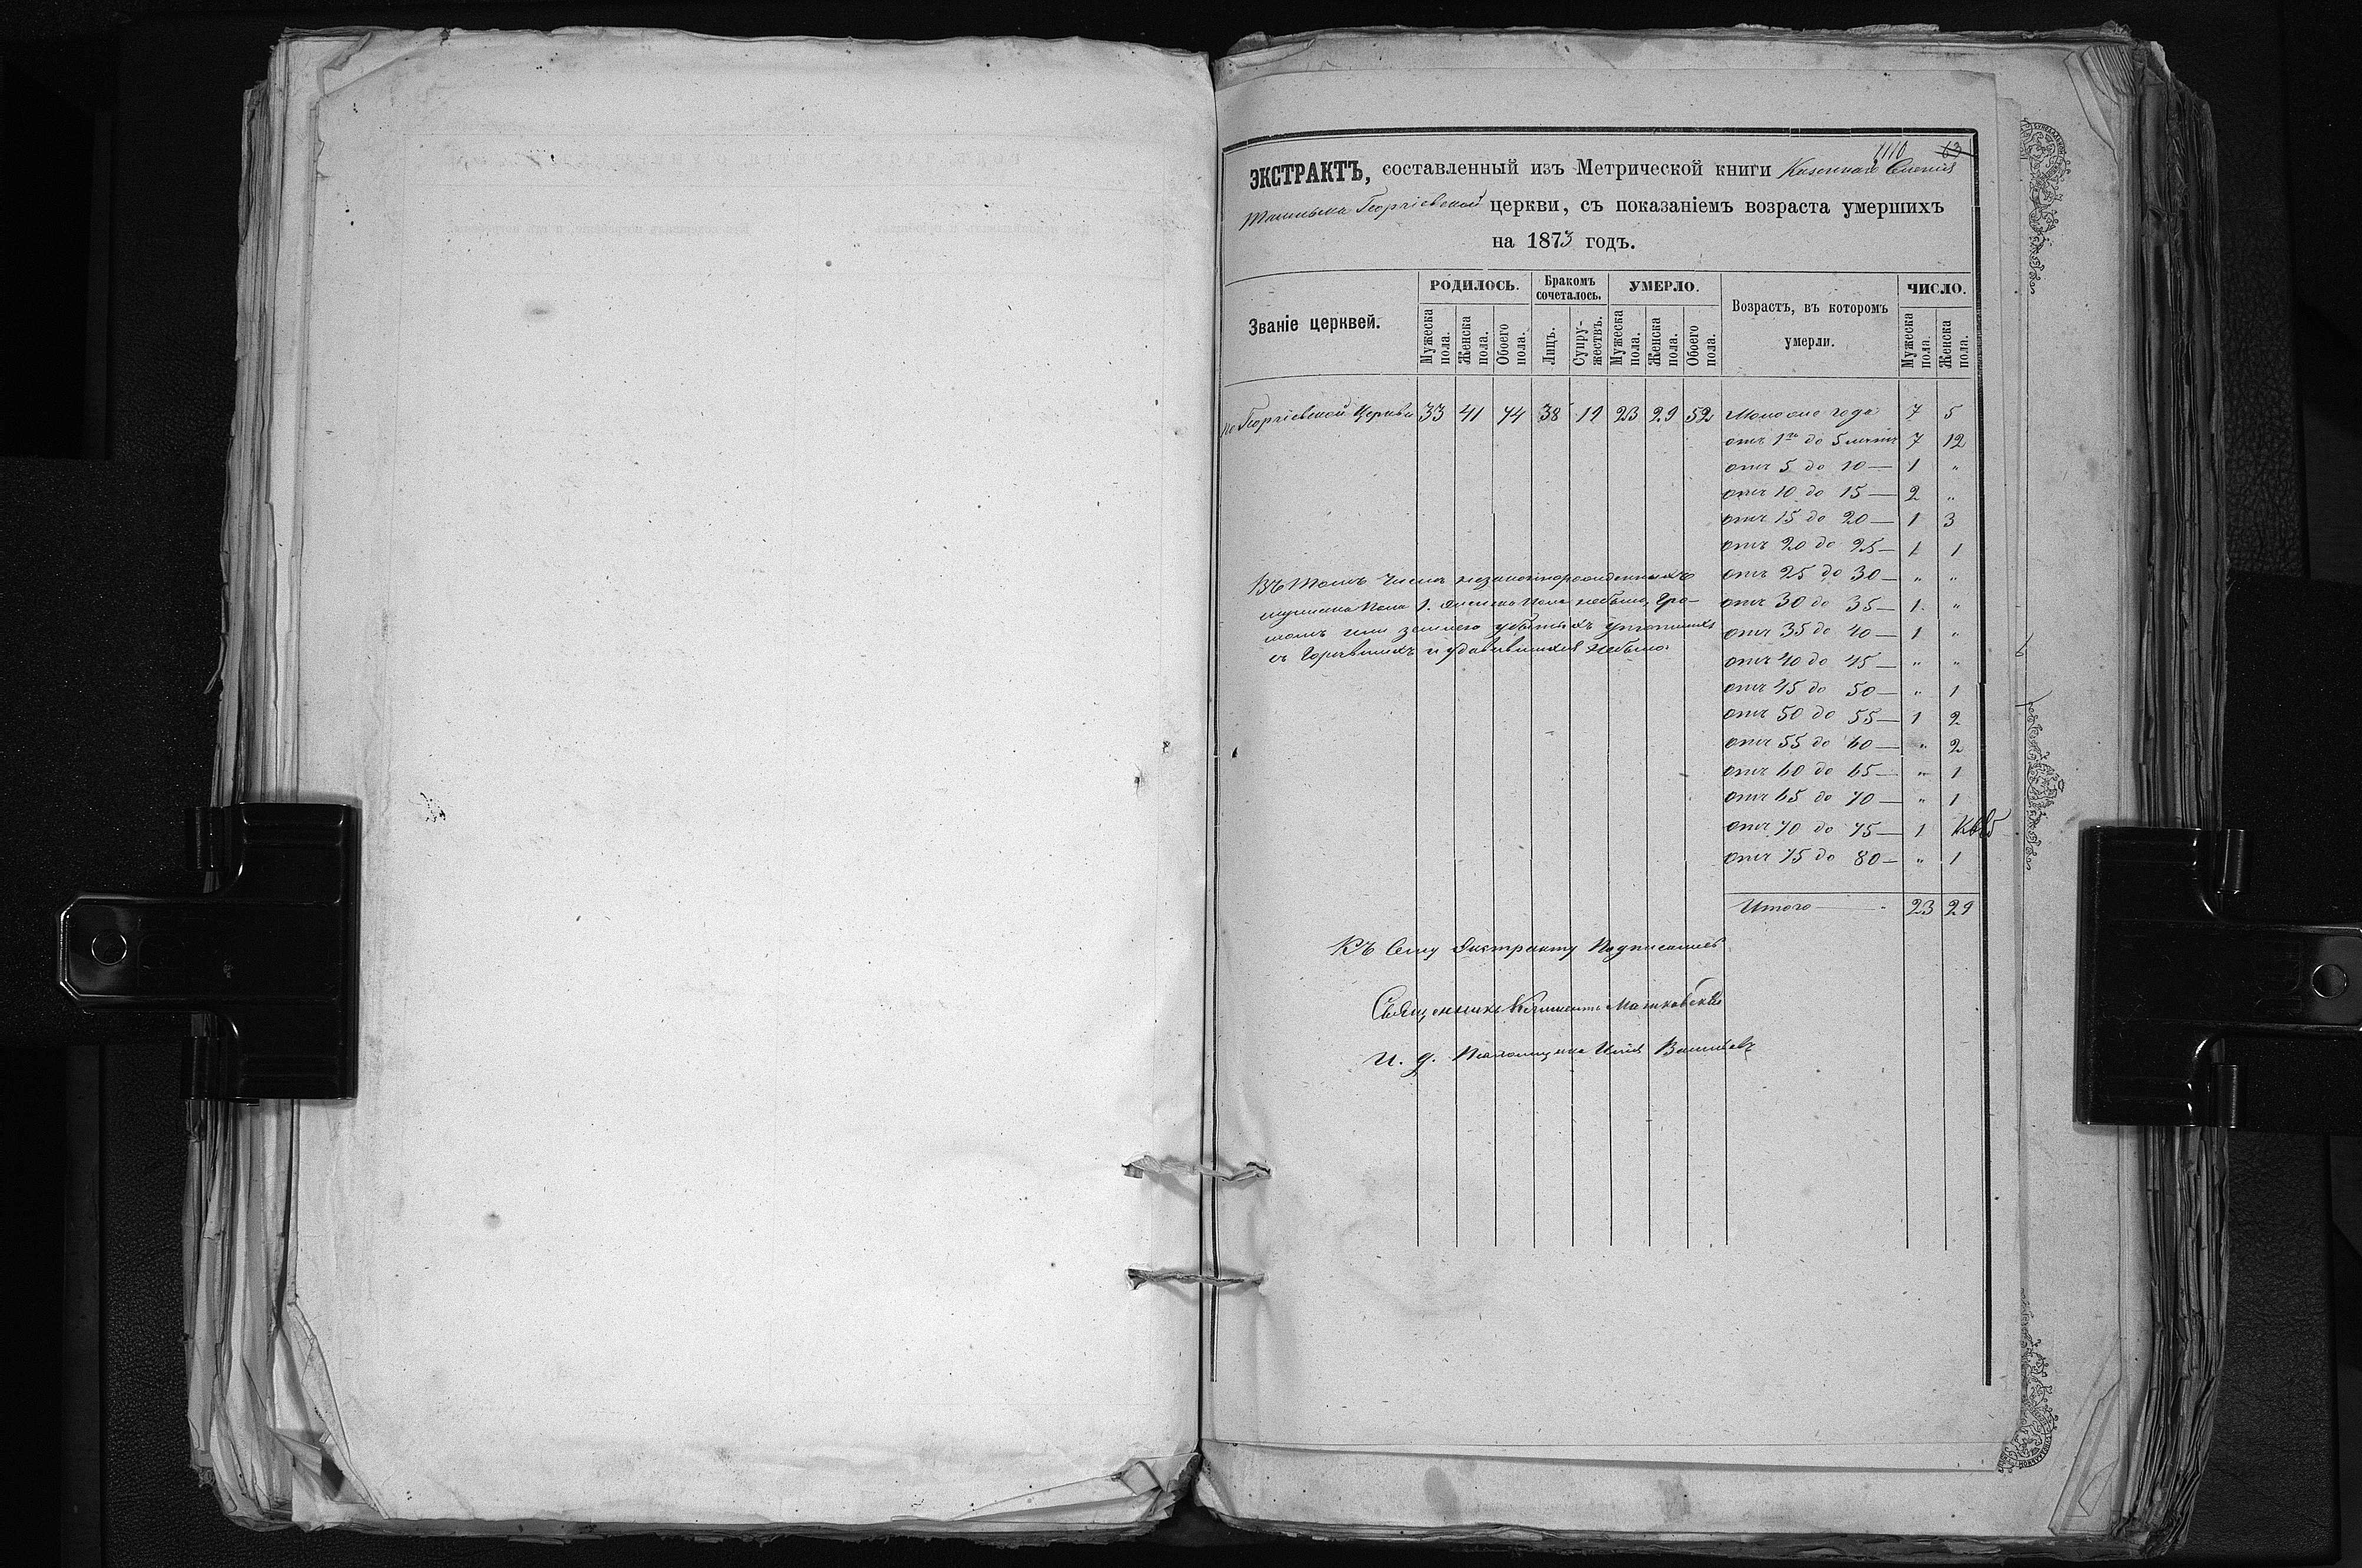 1110 63
ЭКСТРАКТЪ, составленный изъ Метрической книги Казеннаго Селенiя
Георгiевской церкви, съ показанiемъ возраста умершихъ
на 1873 годъ.
Званiе церквей.
РОДИЛОСЬ.
Бракомъ сочеталось.
УМЕРЛО.
Возрастъ, въ которомъ умерли.
ЧИСЛО.
Мужеска пола.
Женска пола.
Обоего пола.
Лицъ.
Супружествъ.
Мужеска пола.
Женска пола.
Обоего пола.
Мужеска пола.
Женска пола.
по Георгiевской Церкви 33 41 74 38 19 23 29 52 года 7 5
отъ 1го до 5 летъ 7 12
отъ 5 до 10 — 1 "
отъ 10 до 15 — 2 "
отъ 15 до 20 — 1 3
отъ 20 до 25 — 1 1
отъ 25 до 30 — " "
отъ 30 до 35 — 1 "
отъ 35 до 40 — 1 "
отъ 40 до 45 — " "
отъ 45 до 50 — " 1
отъ 50 до 55 — 1 2
отъ 55 до 60 — " 2
отъ 60 до 65 — " 1
отъ 65 до 70 — " 1
отъ 70 до 75 — 1
отъ 75 до 80 — " 1
Итого — 23 29
Въ томъ числе незаконнорожденныхъ
мужеска пола 1. женска пола небыло, гро-
момъ или землею убитыхъ утопшихъ
сгоревшихъ и удавившихся небыло
Къ Сему Экстракту Подписались
Священникъ Климентъ Матковскiй
И. д. Псаломщика Илiя